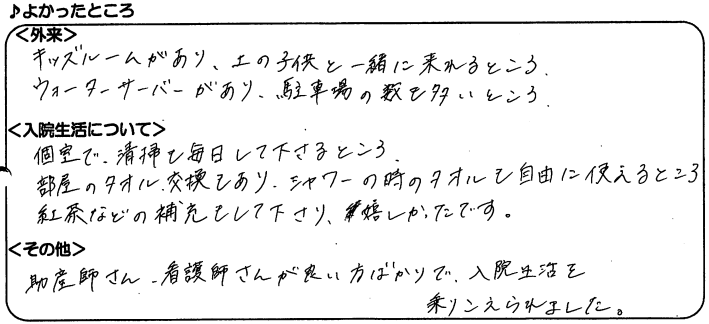 ♪よかったところ
<外来>
キッズルームがあり、上の子供と一緒に来れるところ、
ウォーターサーバーがあり、駐車場の数も多いところ、
<入院生活について>
個室で、清掃も毎日して下さるところ、
部屋のタオル交換もあり、シャワーの時のタオルも自由に使えるところ
紅茶などの補充もして下さり、嬉しかったです。
<その他>
助産師さん、看護師さんが良い方ばかりで、入院生活を
乗りこえられました。